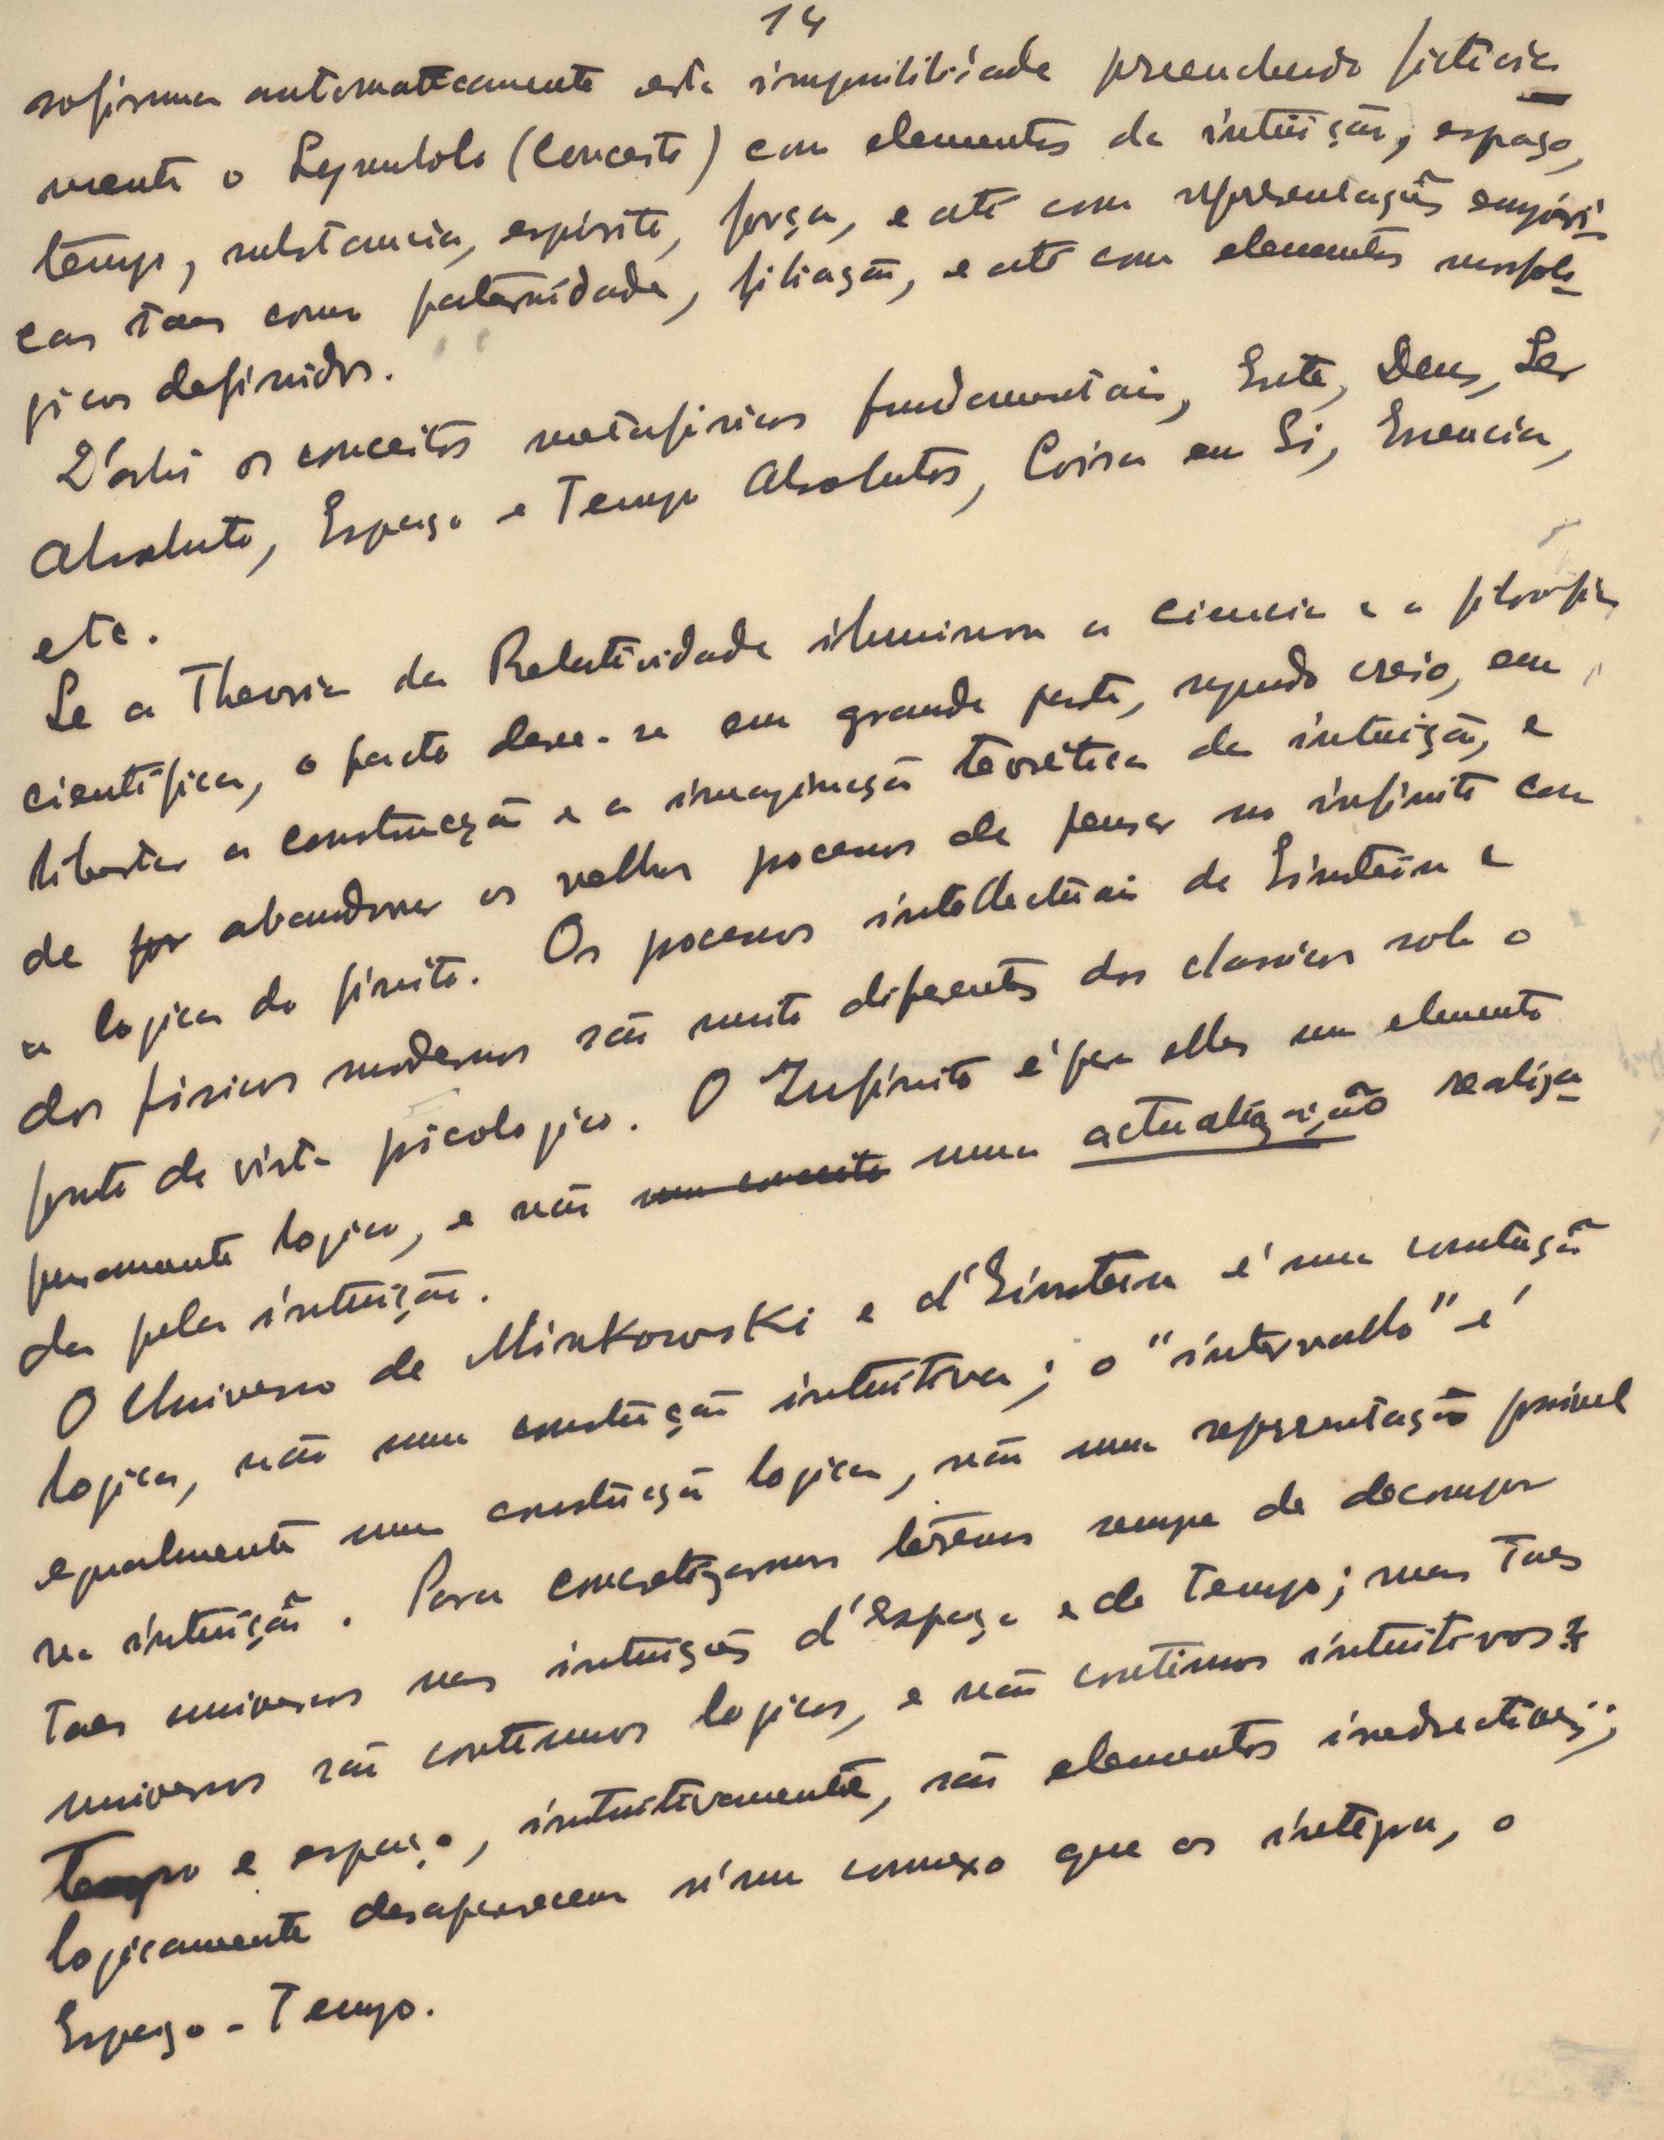 14
sofisma automaticamente esta impossibilidade preenchendo ficticia
mente o Symbolo (Conceito) com elementos da intuição, espaço,
tempo, substancia, espirito, força, e até com representações empiri-
cas taes como paternidade, filiação, e até com elementos morfolo-
gicos definidos.
D'ahi os conceitos metafisicos fundamentais, Ente, Deus, Ser
Absoluto, Espaço e Tempo Absolutos, Coisa em Si, Essencia,
etc.
Se a Theoria da Relatividade iluminou a ciencia e a filosofia
científica, o facto deve-se em grande parte, segundo creio, em
libertar a construcção e a imaginação teoretica da intuição, e
de por abandonar os velhos pocessos de pensar no infinito com
a logica do finito. Os pocessos intellectuais de Einstein e
dos fisicos modernos são muito diferentes dos classicos sob o
ponto de vista psicologico. O Infinito é pra elles um elemento
puramente logico, e não um conceito uma actualização realiza-
da pela intuição.
O Universo de Minkowski e d'Einstein é uma construção
logica, não uma construção intuitiva; o "intervallo" é
egualmente uma construcção logica, não uma representação possivel
na intuição. Para concretizarmos teremos sempre de decompor
taes universos nas intuições d'espaço e de tempo; mas taes
universos são continuos logicos, e não continuos intuitivos:
Tempo e espaço, intuitivamente, são elementos irreductiveis;
logicamente desaparecem n'um connexo que os integra, o
Espaço-Tempo.